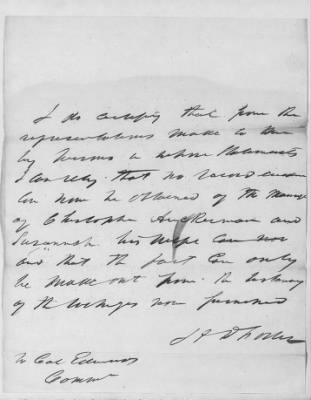 I do certify that from the
representations made to me
by persons in whose statements
I can rely that no record evidence
can now be obtained of the marriage
of Christopher Ackerman and
Susannah his wife
and that the fact can only
be made out from the testimony
of the witnesses now furnished
To Col Edwards
Commr